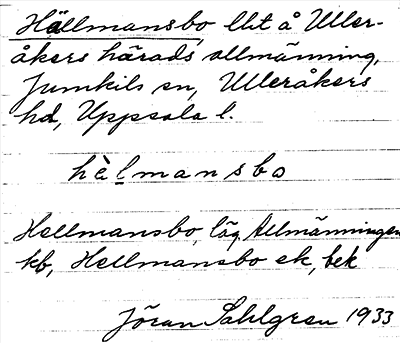 Hällmansbo, llit å Uller-
åkers härads allmänning,
Jumkils sn, Ulleråkers
hd, Uppsala l.
hàlmansbo
Hellmansbo, låg, Allmänningen
kb, Hellmansbo ek, bek
Jöran Sahlgren 1933